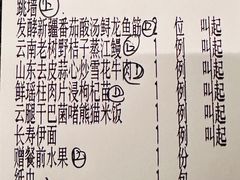 跳墙上
发酵新疆番茄酸汤鲟龙鱼筋 2 位 叫起
云南老树野桔子蒸江鳗 1 例 叫起
山东去皮蒜心炒雪花牛肉 1 例 叫起
鲜瑶柱肉片浸枸杞苗 1 例 叫起
云腿干巴菌啫熊猫米饭 1 例 叫起
长寿伊面 1 例
赠餐前水果 1 份